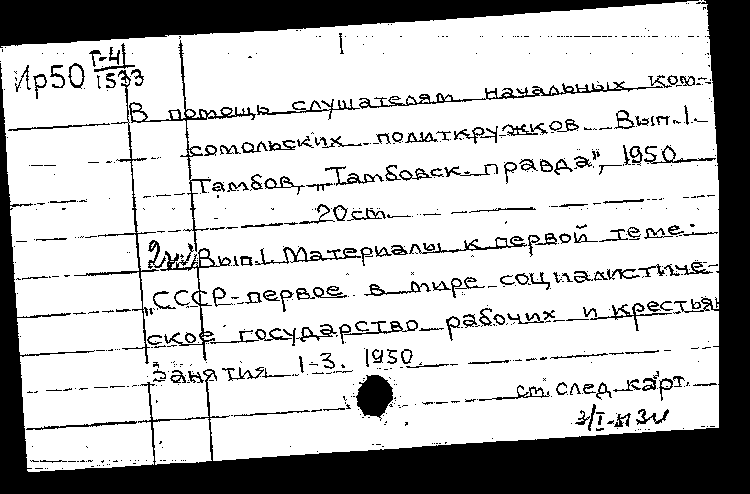 Ир50 Г-41
1533
В помощь слушателям начальных ком-
сомольских политкружков. Вып.1.
Тамбов, „Тамбовск. правда", 1950.
20см.
Вып.1. Материалы к первой теме:
„СССР-первое в мире социалистиче-
ское государство рабочих и крестьян
Занятия 1-3. 1950.
см. след. карт.